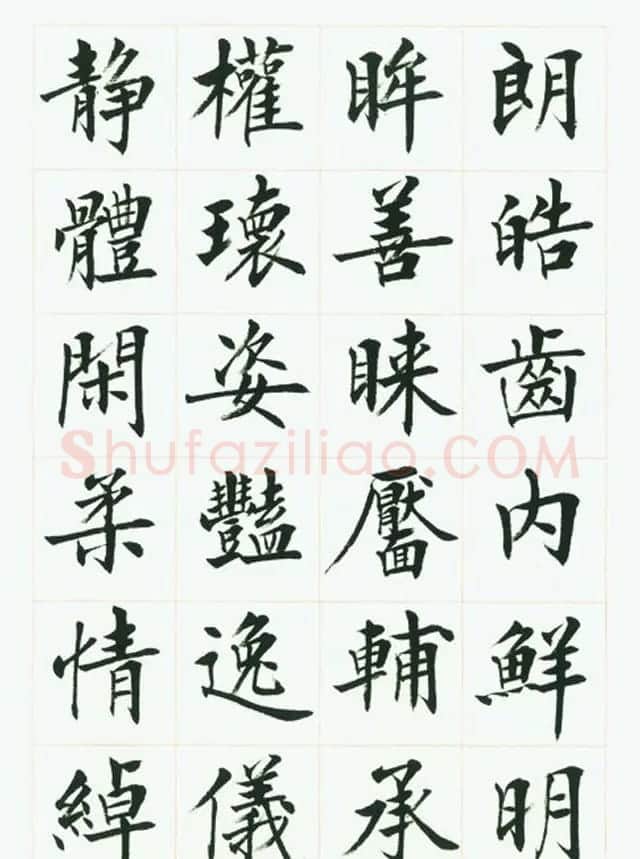 朗皓齒内鮮明
眸善睞靨輔承
權瓌姿豔逸儀
静體閑柔情綽
Shufaziliao.COM